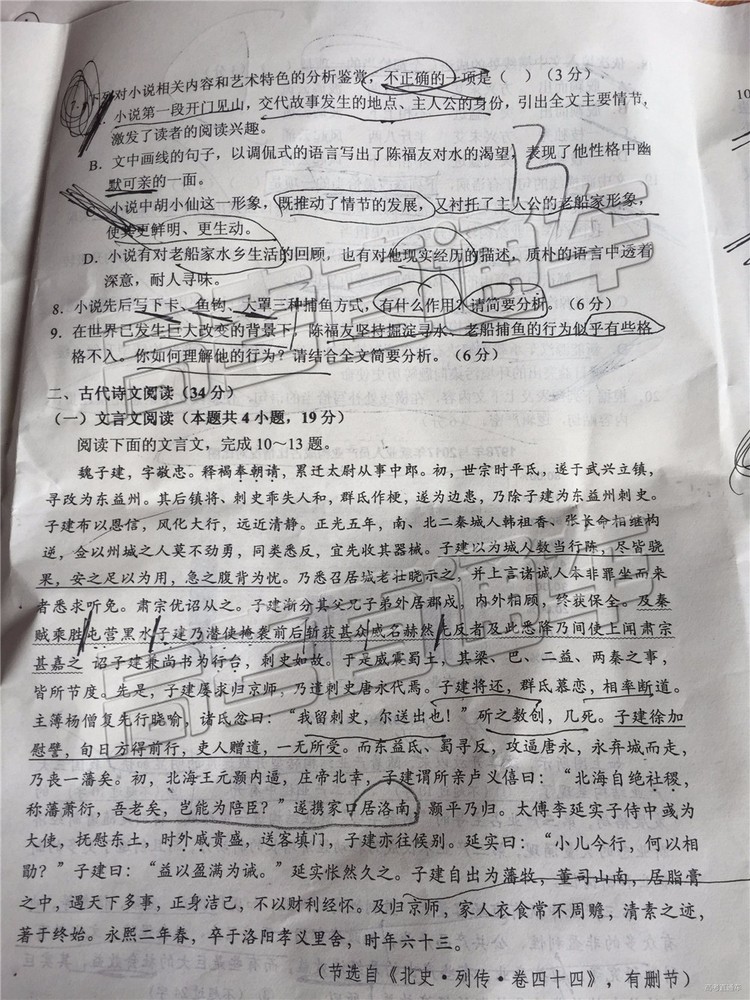 下列对小说相关内容和艺术特色的分析鉴赏，不正确的一项是（ ）（3分）
小说第一段开门见山，交代故事发生的地点、主人公的身份，引出全文主要情节，
激发了读者的阅读兴趣。
B．文中画线的句子，以调侃式的语言写出了陈福友对水的渴望，表现了他性格中幽
默可亲的一面。
C．小说中胡小仙这一形象，既推动了情节的发展，又衬托了主人公的老船家形象，
使其更鲜明、更生动。
D．小说有对老船家水乡生活的回顾，也有对他现实经历的描述，质朴的语言中透着
深意，耐人寻味。
8．小说先后写下卡、鱼钩、大罩三种捕鱼方式，有什么作用？请简要分析。（6分）
9．在世界已发生巨大改变的背景下，陈福友坚持掘淀寻水、老船捕鱼的行为似乎有些格
格不入。你如何理解他的行为？请结合全文简要分析。（6分）
二、古代诗文阅读（34分）
（一）文言文阅读（本题共4小题，19分）
阅读下面的文言文，完成10～13题。
魏子建，字敬忠。释褐奉朝请，累迁太尉从事中郎。初，世宗时平氐，遂于武兴立镇，
寻改为东益州。其后镇将、刺史乖失人和，群氐作梗，遂为边患，乃除子建为东益州刺史。
子建布以恩信，风化大行，远近清静。正光五年，南、北二秦城人韩祖香、张长命相继构
逆，佥以州城之人莫不劲勇，同类悉反，宜先收其器械。子建以为城人数当行陈，尽皆骁
果，安之足以为用，急之腹背为忧。乃悉召居城老壮晓示之，并上言诸城人本非罪坐而来
者悉求听免。肃宗优诏从之。子建渐分其父兄子弟外居郡戍，内外相顾，终获保全。及秦
贼乘胜屯营黑水子建乃潜使掩袭前后斩获甚众威名赫然先反者及此悉降乃间使上闻肃宗
甚嘉之 诏子建兼尚书为行台，刺史如故。于是威震蜀土，其梁、巴、二益、两秦之事，
皆所节度。先是，子建屡求归京师，乃遣刺史唐永代焉。子建将还，群氐慕恋，相率断道。
主簿杨僧复先行晓喻，诸氐忿曰：“我留刺史，尔送出也！”斫之数创，几死。子建徐加
慰譬，旬日方得前行，吏人赠遗，一无所受。而东益氐、蜀寻反，攻逼唐永，永弃城而走，
乃丧一藩矣。初，北海王元颢内逼，庄帝北幸，子建谓所亲卢义僖曰：“北海自绝社稷，
称藩萧衍，吾老矣，岂能为陪臣？”遂携家口居洛南，颢平乃归。太傅李延实子侍中彧为
大使，抚慰东土，时外戚贵盛，送客填门，子建亦往候别。延实曰：“小儿今行，何以相
勖？”子建曰：“益以盈满为诫。”延实怅然久之。子建自出为藩牧，董司山南，居脂膏
之中，遇天下多事，正身洁己，不以财利经怀。及归京师，家人衣食常不周赡，清素之迹，
著于终始。永熙二年春，卒于洛阳孝义里舍，时年六十三。
（节选自《北史·列传·卷四十四》，有删节）